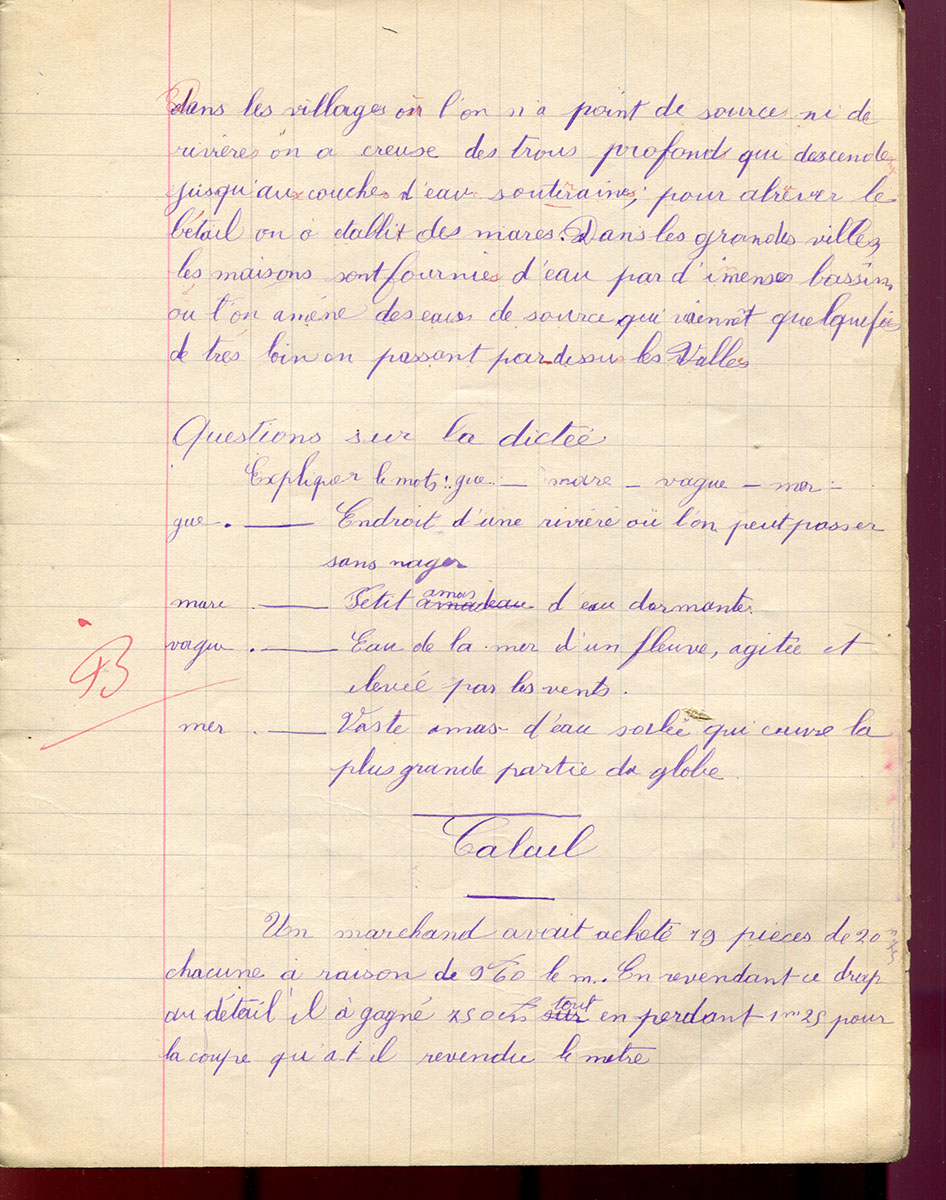 dans les villages où l'on n'a point de sources ni de
rivières on a creuse des trous profonds qui descende
jusqu'aux couches d'eau souterraines; pour abrever le
bétail on a établit des mares. Dans les grandes villes
les maisons sont fournies d'eau par d'imenses bassins
où l'on amène des eaux de source qui viennet quelquefois
de très loin en passant par dessus les Valles
Questions sur la dictéé
Expliquer le mots: gue - mare - vague - mer -
gue. — Endroit d'une riviéré où l'on peut passer
sans nager
mare. — Petit amas d'eau dormante.
vague. — Eau de la mer d'un fleuve, agitée et
elevéé par les vents.
mer. — Vaste amas d'eau salée qui couvre la
plus grande partie du globe
Calcul
Un marchand avait acheté 19 pièces de 20
chacune à raison de 9 60 le m. En revendant ce drap
au détail il à gagné en tout en perdant 1m 25 pour
la coupe qu'a t il revendu le metre